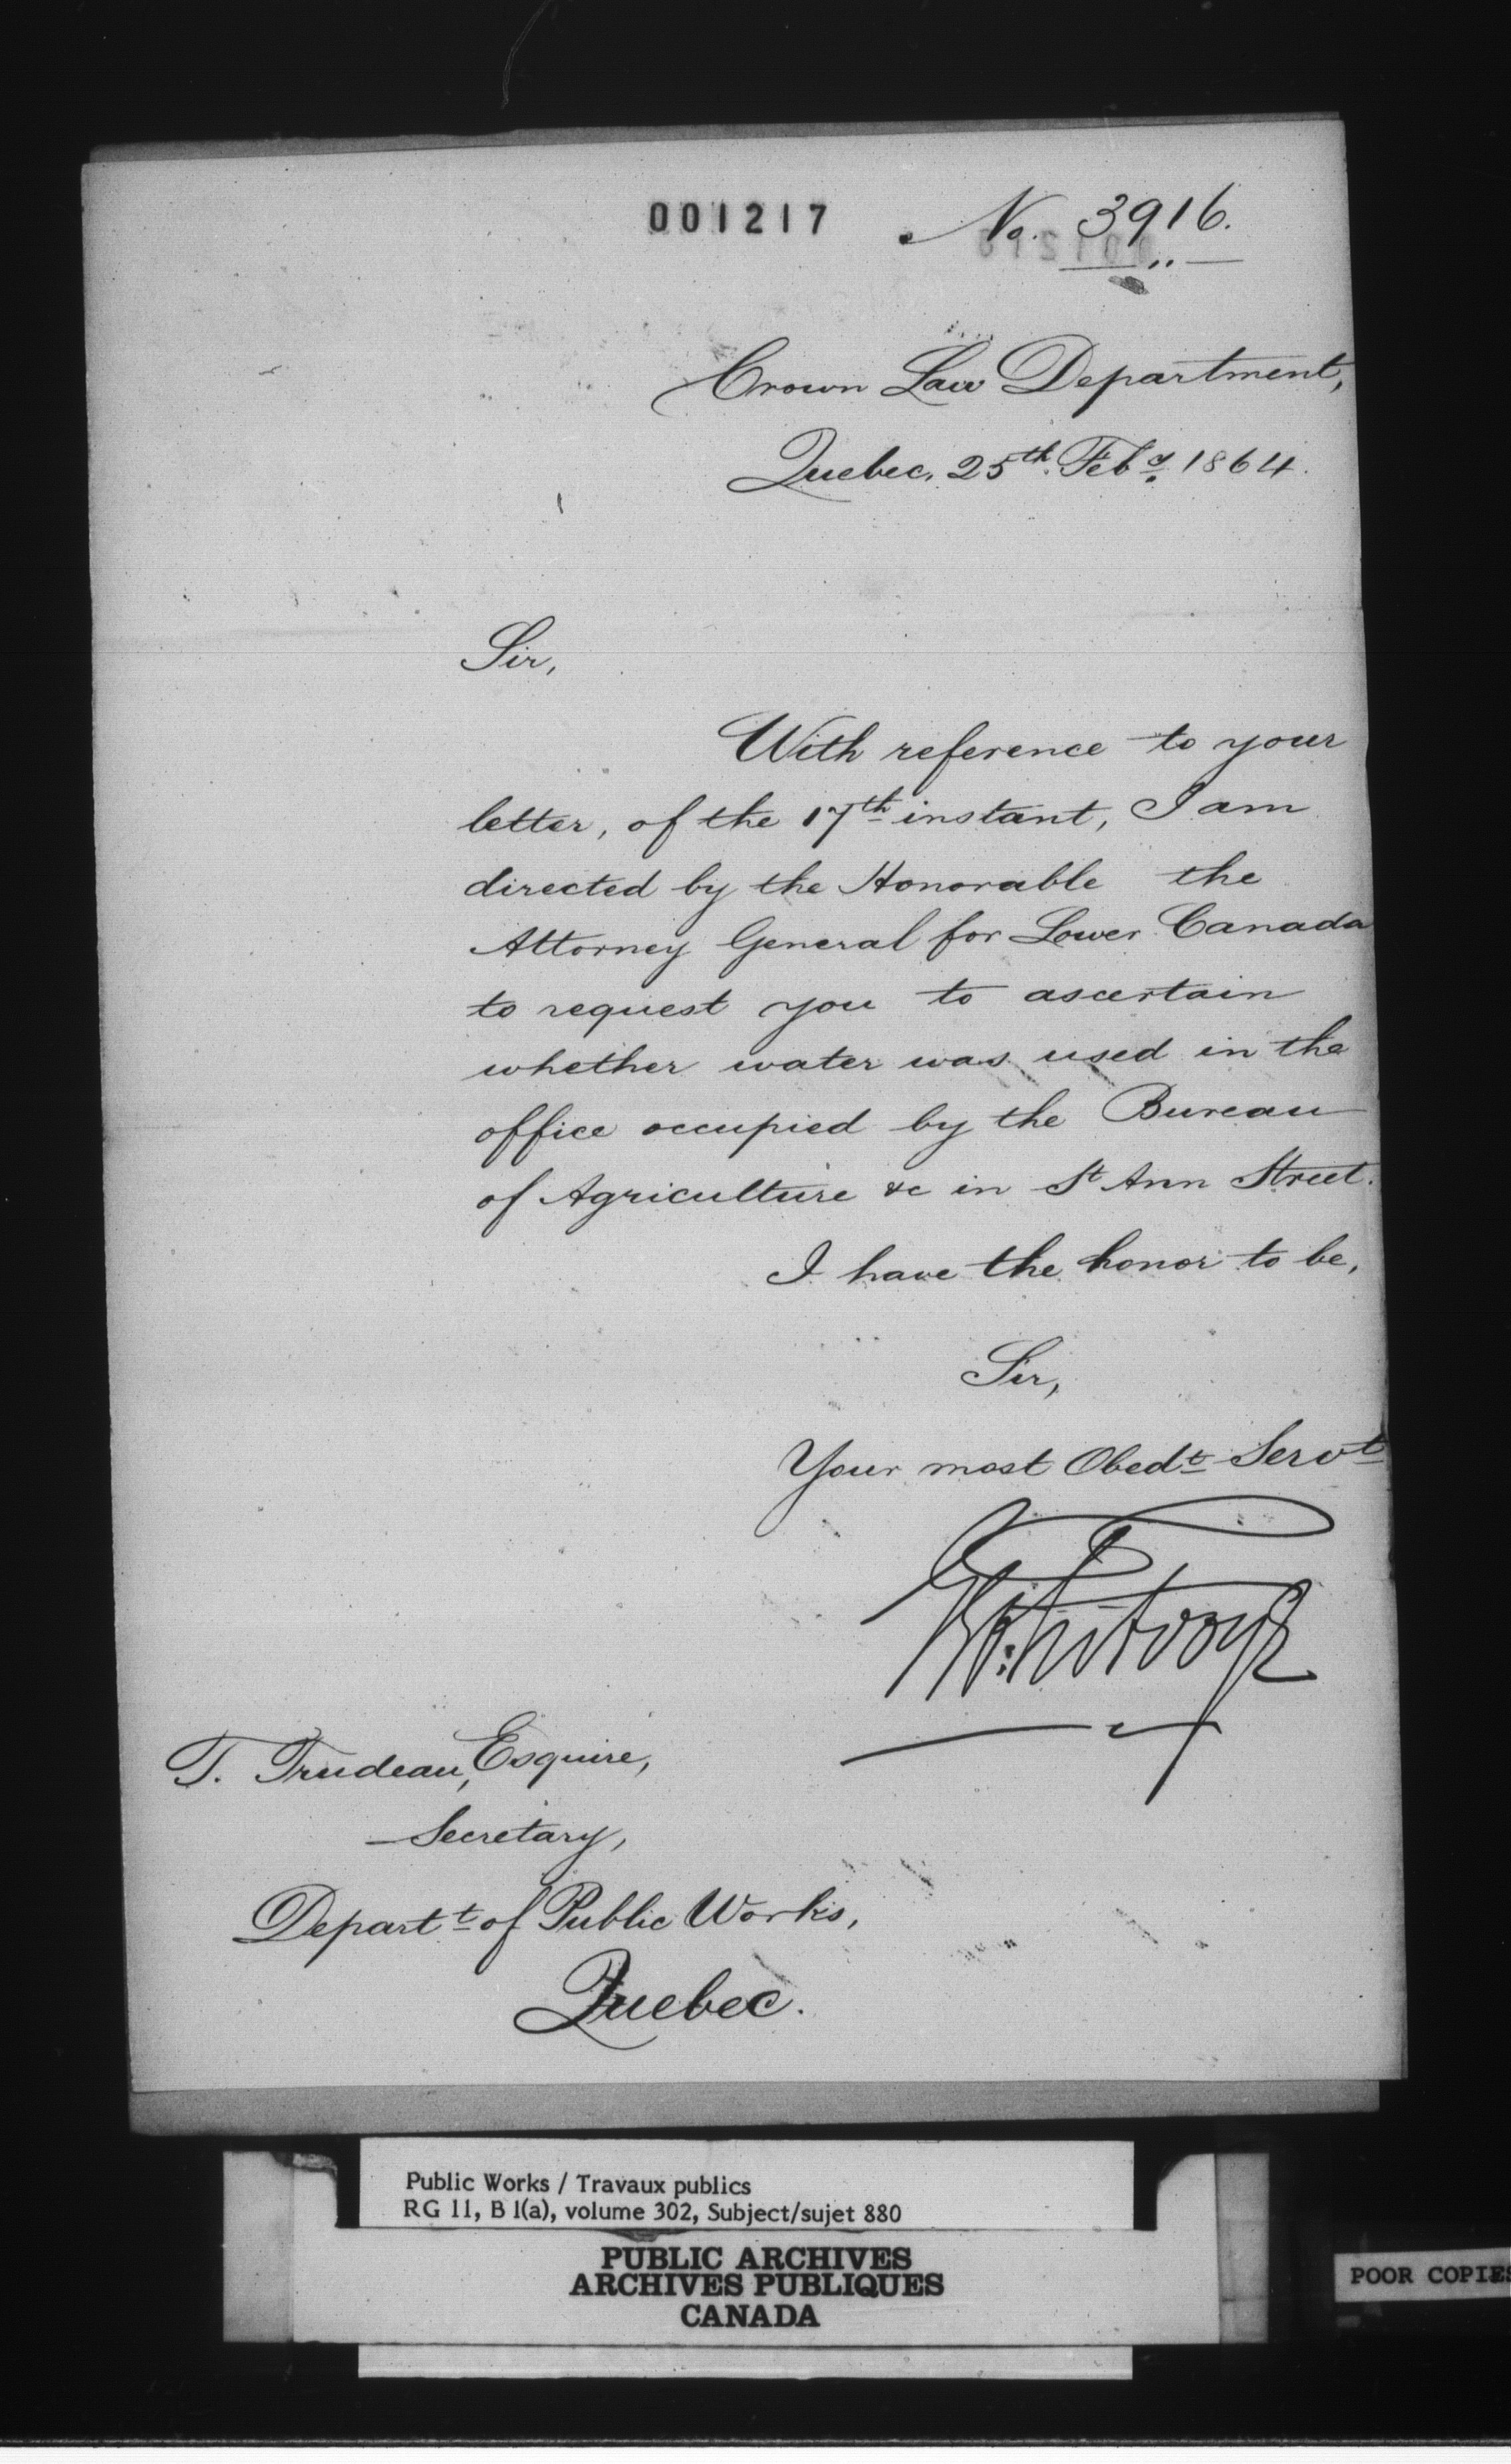 001217 No. 3916.
Crown Law Department,
Quebec, 25th Feby. 1864.
Sir,
With reference to your
letter, of the 17th instant, I am
directed by the Honorable the
Attorney General for Lower Canada
to request you to ascertain
whether water was used in the
office occupied by the Bureau
of Agriculture &c in St Ann Street.
I have the honor to be,
Sir,
Your most Obedt Servt
T. Trudeau, Esquire,
Secretary,
Departt of Public Works,
Quebec.
Public Works / Travaux publics
RG 11, B 1(a), volume 302, Subject/sujet 880
PUBLIC ARCHIVES
ARCHIVES PUBLIQUES
CANADA
POOR COPIES